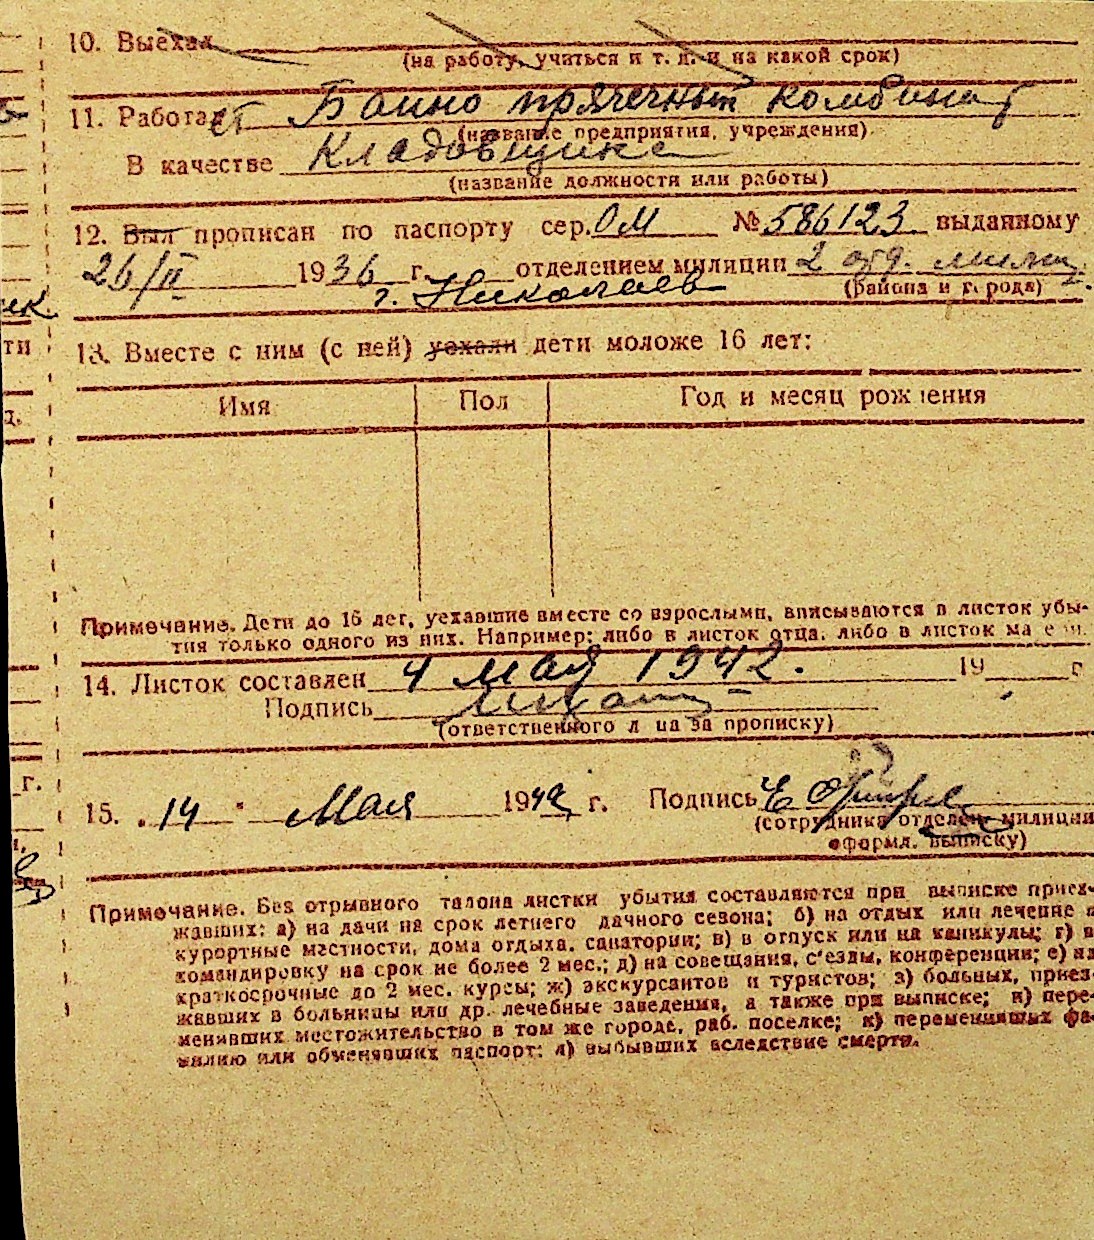 10. Выехал
(на работу, учиться и т. п. и на какой срок)
11. Работает Банно прачечный комбинат
(название предприятия, учреждения)
В качестве Кладовщика
(название должности или работы)
12. Был прописан по паспорту сер. ОМ № 586123 выданному
26/II 1936 г. отделением милиции 2 отд. милиц.
г. Николаев (района и города)
13. Вместе с ним (с ней) уехали дети моложе 16 лет:
Имя Пол Год и месяц рождения
Примечание. Дети до 16 лет, уехавшие вместе со взрослыми, вписываются в листок убы-
тия только одного из них. Например: либо в листок отца, либо в листок матери.
14. Листок составлен 4 мая 1942. 19 г
Подпись
(ответственного лица за прописку)
15. "14" Мая 1942 г. Подпись
(сотрудника отделен. милиции
оформл. выписку)
Примечание. Без отрывного талона листки убытия составляются при выписке приез-
жавших: а) на дачи на срок летнего дачного сезона; б) на отдых или лечение в
курортные местности, дома отдыха, санатории; в) в отпуск или на каникулы; г) в
командировку на срок не более 2 мес.; д) на совещания, с'езды, конференции; е) на
краткосрочные до 2 мес. курсы; ж) экскурсантов и туристов; з) больных, приез-
жавших в больницы или др. лечебные заведения, а также при выписке; и) пере-
менивших местожительство в том же городе, раб. поселке; к) переменивших фа-
милию или обменявших паспорт; л) выбывших вследствие смерти.